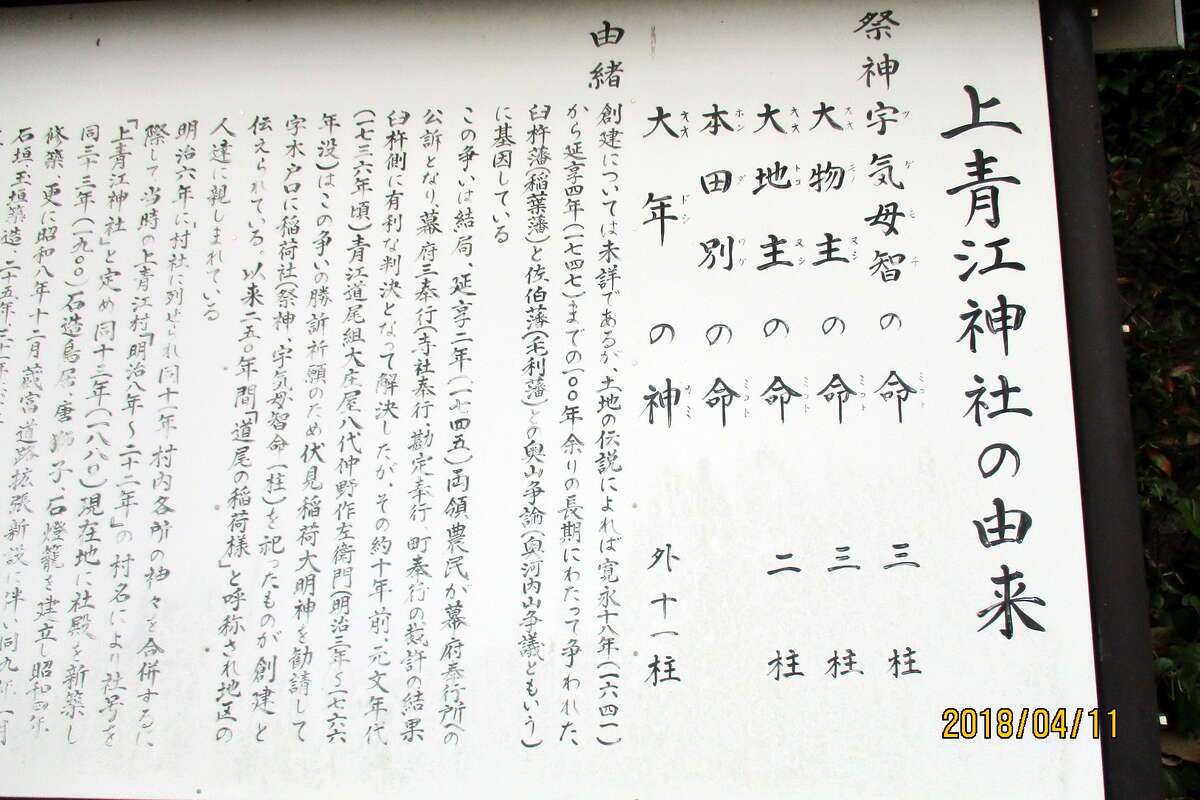 上青江神社の由来
祭神 宇気母智の命 三柱
ツゲミチ ミコト
大物主の命 三柱
大地主の命 二柱
本田別の命
大年の神 外十一柱
由緒
創建については未詳であるが、土地の伝説によれば寛永十八年(一六四一)
から延享四年(一七四七)までの一〇〇年余りの長期にわたって争われた、
臼杵藩(稲葉藩)と佐伯藩(毛利藩)との奥山争論(奥河内山争議ともいう)
に基因している
この争いは結局、延享二年(一七四五)両領農民が幕府奉行所への
公訴となり、幕府三奉行(寺社奉行、勘定奉行、町奉行の裁許の結果
臼杵側に有利な判決となって解決したが、その約十年前、元文年代
(一七三六年頃)青江道尾組大庄屋八代仲野作左衛門(明治三年〜一七六六
年没)はこの争いの勝訴祈願のため伏見稲荷大明神を勧請して
字木戸口に稲荷社(祭神、宇気母智命(一柱)を祀ったものが創建と
伝えられている。以来二五〇年間「道尾の稲荷様」と呼称され地区の
人達に親しまれている
明治六年に村社に列せられ同十一年村内各所の神々を合併するに
際して、当時の上青江村「明治八年〜二十二年」の村名により社号を
「上青江神社」と定め同十三年(一八八〇)現在地に社殿を新築し
同三十三年(一九〇〇)石造鳥居、唐獅子、石燈籠を建立し昭和四年
修築、更に昭和八年十二月蔵富道路拡張新設に伴い同九年一月
石垣、玉垣築造、二十五年
2018/04/11